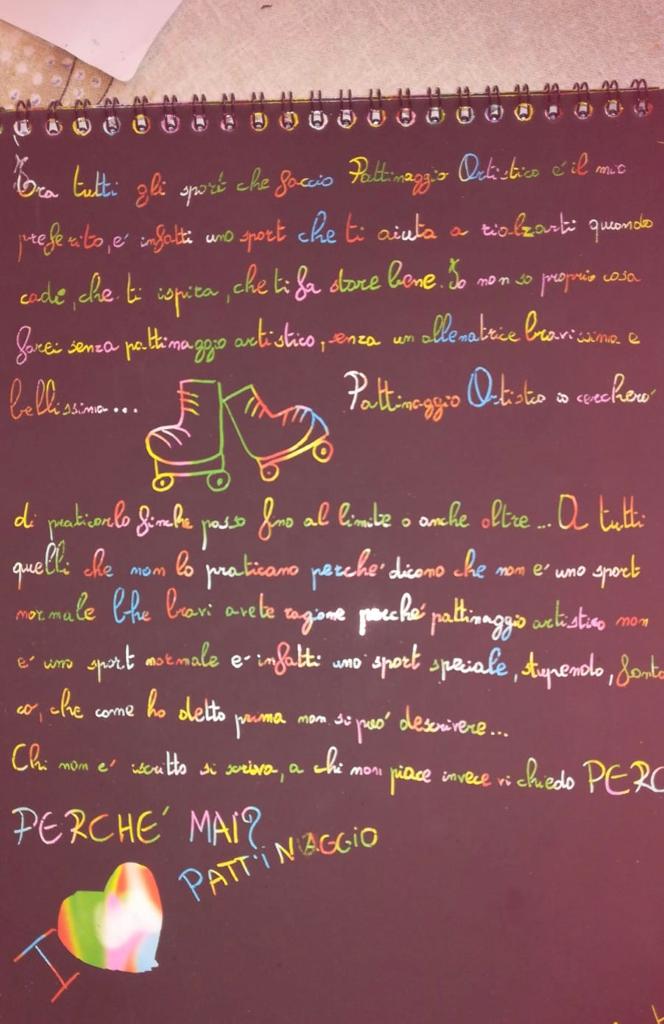 Tra tutti gli sport che faccio Pattinaggio Artistico è il mio
preferito, e' infatti uno sport che ti aiuta a rialzarti quando
cadi, che ti ispira, che ti fa stare bene. Io non so proprio cosa
farei senza pattinaggio artistico, senza un allenatrice bravissima e
bellissima... Pattinaggio Artistico io cercherò
di praticarlo finche posso fino al limite o anche oltre... A tutti
quelli che non lo praticano perche' dicono che non e' uno sport
normale bhe bravi avete ragione perche' pattinaggio artistico non
e' uno sport normale e' infatti uno sport speciale, stupendo, fanta
co, che come ho detto prima non si puo' descrivere...
Chi non e' iscritto si scriva, a chi non piace invece vi chiedo PERC
PERCHE' MAI?
PATTINAGGIO
I